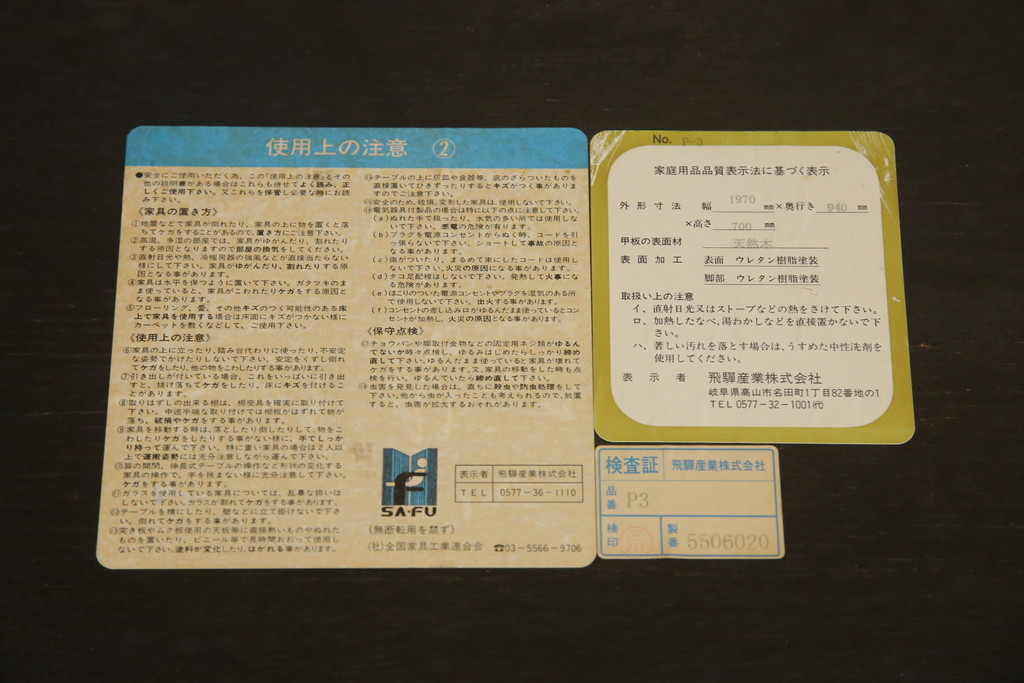 使用上の注意 ②
●安全にご使用いただく為、この「使用上の注意」とその
他の説明書がある場合はこれらも併せてよく読み、正
しくご使用下さい。又これらを保管し必要な時にお読
み下さい。
《家具の置き方》
①地震などで家具が倒れたり、家具の上に物を置くと落
ちてケガをすることがあるので、置き方にご注意下さい。
②高温、多湿の部屋では、家具がゆがんだり、割れたり
する原因となりますので部屋の換気をしてください。
③直射日光や熱、冷暖房器の強風などが直接当たらない
様にして下さい。家具がゆがんだり、割れたりする原
因となる事があります。
④家具は水平を保つように置いて下さい。ガタツキのま
ま使っていると、家具がこわれたりケガをする原因
となる事があります。
⑤フローリング、畳、その他キズのつく可能性のある床
上で家具を使用する場合は床面にキズがつかない様に
カーペットを敷くなどして、ご使用下さい。
《使用上の注意》
⑥家具の上に立ったり、踏み台代わりに使ったり、不安定
な姿勢でかけたりしないで下さい。安定をくずし倒れ
てケガをしたり、他の物をこわしたりする事があります。
⑦引き出しが付いている場合、これをいっぱいに引き出
すと、抜け落ちてケガをしたり、床にキズを付けるこ
とがあります。
⑧取りはずしの出来る棚は、棚受具を確実に取り付けて
下さい。中途半端な取り付けでは棚板がはずれて物が
落ち、破損やケガをする事があります。
⑨家具を移動する時は、落としたり倒したりして、物をこ
わしたりケガをしたりする事がない様に、手でしっか
り持って運んで下さい。特に重い家具の場合は2人以上
で運搬姿勢には充分注意しながら運んで下さい。
⑩扉の開閉、伸長式テーブルの操作など形状の変化する
家具の操作で、手を挟まない様に充分注意して下さい。
ケガをする事があります。
⑪ガラスを使用している家具については、乱暴な扱いは
しないで下さい。ガラスが割れてケガをする事があります。
⑫テーブルを横にしたり、壁などに立て掛けないで下さ
い。倒れてケガをする事があります。
⑬突き板やムク板使用の天板等に直接熱いものやぬれた
ものを置いたり、ビニール等で長時間おおって使用し
ないで下さい。塗料が変化したり、はがれる事があります。
⑭テーブルの上に灰皿や食器等、底のざらついたものを
直接置いてひきずったりするとキズがつく事がありま
すのでご注意下さい。
⑮安全のため、破損、変形した家具は、使用しないで下さい。
⑯電気器具付製品の場合は特に以下の点に注意して下さい。
(a)ぬれた手で扱ったり、水気の多い所では使用しな
いで下さい。感電の危険が有ります。
(b)プラグを電源コンセントからぬく時、コードを引
っ張らないで下さい。ショートして事故の原因と
なる事があります。
(c)傷がついたり、まるめて束にしたコードは使用し
ないで下さい。火災の原因になる事があります。
(d)タコ足配線はしないで下さい。発熱して火事にな
る危険があります。
(e)ほこりのついた電源コンセントやプラグを湿気のある所
で使用しないで下さい。出火する事があります。
(f)コンセントの差し込み口がゆるんだまま使っているとコン
セントが加熱し、火災の原因となる事があります。
《保守点検》
⑰チョウバンや脚取付金物などの固定用ネジ類がゆるん
でないか時々点検し、ゆるみはじめたらしっかり締め
直して下さい。ゆるんだまま使っていると家具が壊れて
ケガをする事があります。又、家具の移動をした時も点
検を行い、ゆるんでいたら締め直して下さい。
⑱虫害を発見した場合は、直ちに殺虫や防虫処理をして
下さい。他から虫が入ったことも考えられるので、放置
すると、虫害が拡大するおそれがあります。
SA·FU
表示者 飛驒産業株式会社
TEL 0577-36-1110
(無断転用を禁ず)
(社)全国家具工業連合会 ☎03-5566-9706
No. P-3
家庭用品品質表示法に基づく表示
外形寸法 幅 1970 mm×奥行き 940 mm
×高さ 700 mm
甲板の表面材 天然木
表面加工 表面 ウレタン樹脂塗装
脚部 ウレタン樹脂塗装
取扱い上の注意
イ、直射日光又はストーブなどの熱をさけて下さい。
ロ、加熱したなべ、湯わかしなどを直接置かないで下
さい。
ハ、著しい汚れを落とす場合は、うすめた中性洗剤を
使用してください。
表示者 飛驒産業株式会社
岐阜県高山市名田町1丁目82番地の1
TEL 0577-32-1001㈹
検査証 飛驒産業株式会社
品番 P3
検印 製番 5506020